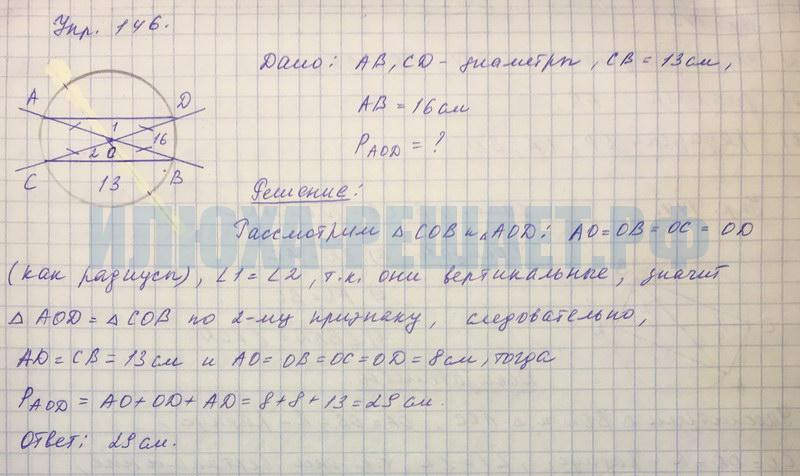 Упр. 146.
Дано: AB, CD - диаметры, CB = 13 см,
AB = 16 см
P AOD = ?
A
D
1
16
2
O
C
13
B
Решение:
ИЛЮХА-РЕШАЕТ.РФ
Рассмотрим △ COB и △ AOD: AO = OB = OC = OD
(как радиусы), ∠1 = ∠2, т.к. они вертикальные, значит
△ AOD = △ COB по 2-му признаку, следовательно,
AD = CB = 13 см и AO = OB = OC = OD = 8 см, тогда
P AOD = AO + OD + AD = 8 + 8 + 13 = 29 см.
Ответ: 29 см.